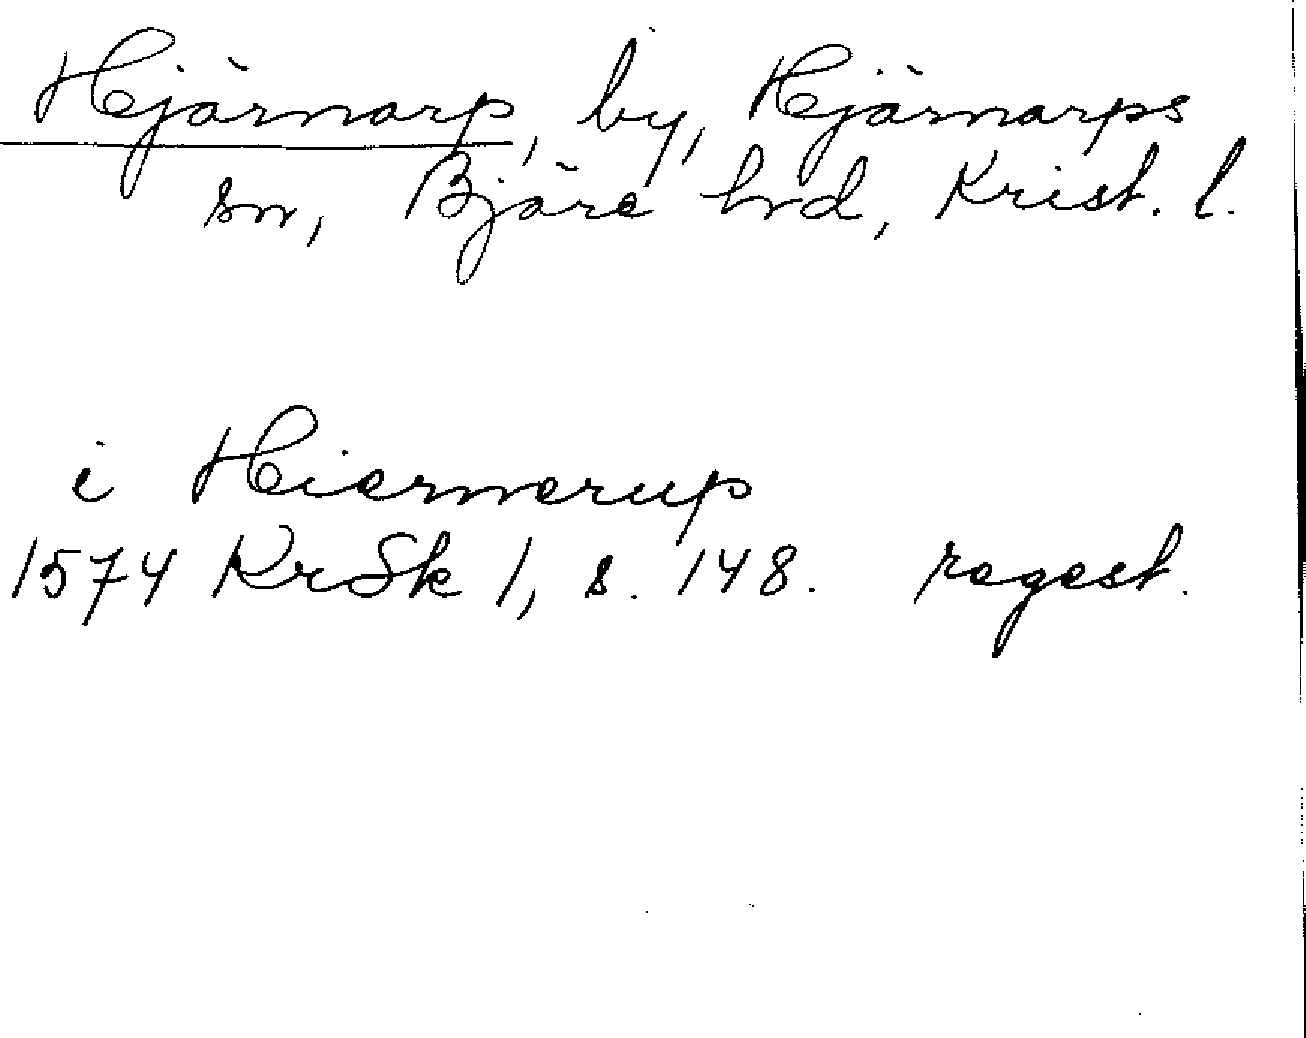 Hjärnarp, by, Hjärnarps
sn, Bjäre hrd, Krist. l.
i Hiernerup
1574 KrSk 1, s. 148. regest.